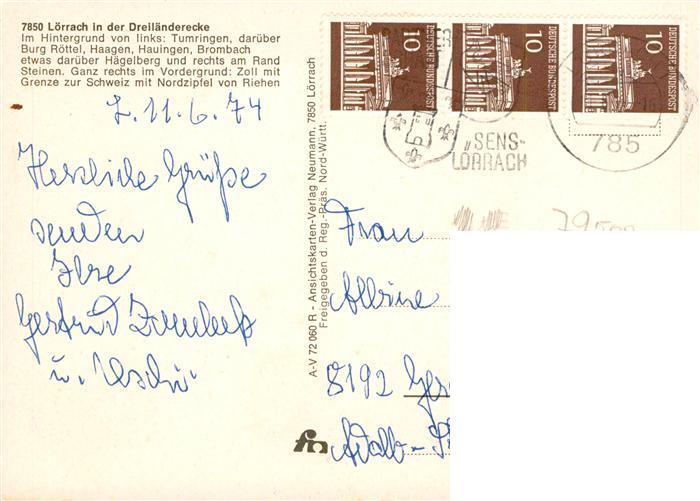 7850 Lörrach in der Dreiländerecke
Im Hintergrund von links: Tumringen, darüber
Burg Röttel, Haagen, Hauingen, Brombach
etwas darüber Hägelberg und rechts am Rand
Steinen. Ganz rechts im Vordergrund: Zoll mit
Grenze zur Schweiz mit Nordzipfel von Riehen
11.6.74
Herzliche Grüße
senden
Ihre
Gertrud
u. Uschi
A-V 72 060 R - Ansichtskarten-Verlag Neumann, 7850 Lörrach
Freigegeben d. Reg.-Präs. Nord-Württ.
10 DEUTSCHE BUNDESPOST
10 DEUTSCHE BUNDESPOST
10 DEUTSCHE BUNDESPOST
„SENS-
LÖRRACH
785
Frau
Albine
8192
fn